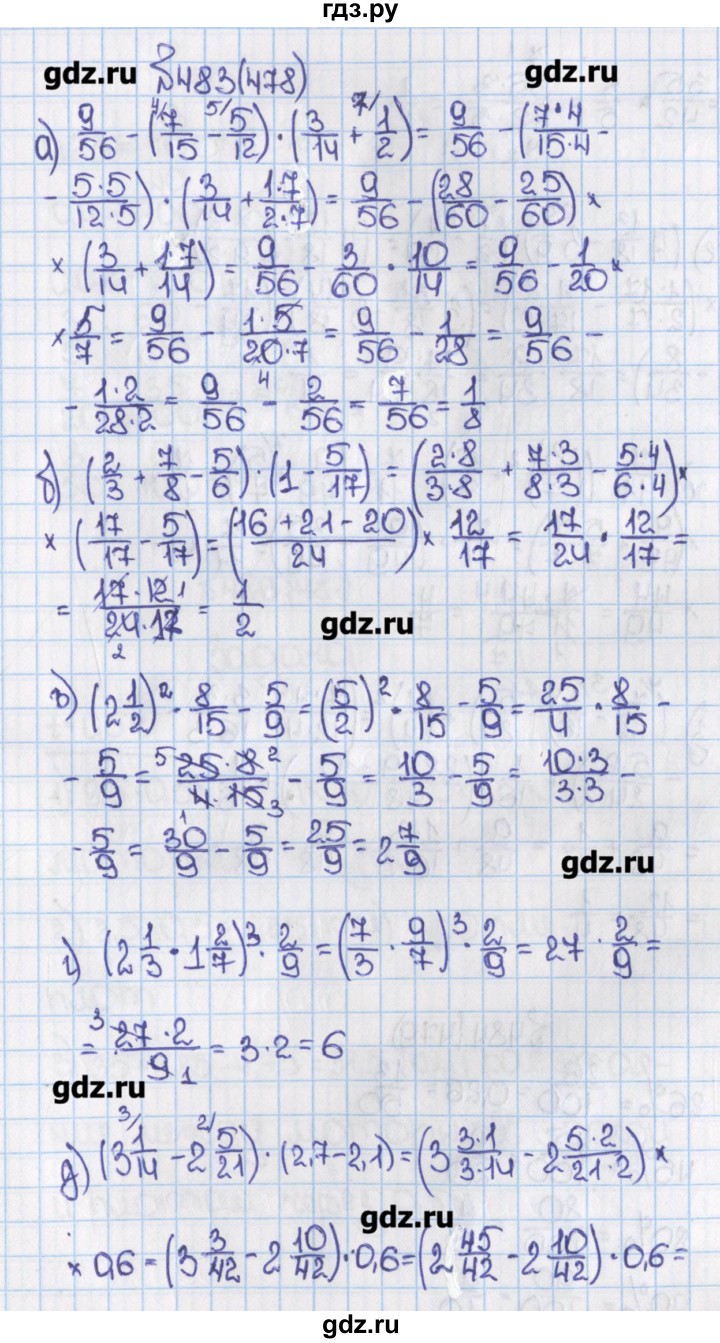 гдз.ру
gdz.ru gdz.ru
№483(478)
а) 9/56 - (7/15 - 5/12) · (3/14 + 1/2) = 9/56 - (7·4/15·4 -
- 5·5/12·5) · (3/14 + 1·7/2·7) = 9/56 - (28/60 - 25/60) ×
× (3/14 + 1·7/14) = 9/56 - 3/60 · 10/14 = 9/56 - 1/20 ×
× 5/7 = 9/56 - 1·5/20·7 = 9/56 - 1/28 = 9/56 -
- 1·2/28·2 = 9/56 - 2/56 = 7/56 = 1/8
б) (2/3 + 7/8 - 5/6) · (1 - 5/17) = (2·8/3·8 + 7·3/8·3 - 5·4/6·4) ×
× (17/17 - 5/17) = (16+21-20/24) × 12/17 = 17/24 · 12/17 =
= 17·12/24·17 = 1/2
gdz.ru
в) (2 1/2)² · 8/15 - 5/9 = (5/2)² · 8/15 - 5/9 = 25/4 · 8/15 -
- 5/9 = 25·8/4·15 - 5/9 = 10/3 - 5/9 = 10·3/3·3 -
- 5/9 = 30/9 - 5/9 = 25/9 = 2 7/9
gdz.ru
г) (2 1/3 · 1 2/7)³ · 2/9 = (7/3 · 9/7)³ · 2/9 = 27 · 2/9 =
= 27·2/9 = 3·2 = 6
gdz.ru
д) (3 1/14 - 2 5/21) · (2,7-2,1) = (3 3·1/3·14 - 2 5·2/21·2) ×
gdz.ru
× 0,6 = (3 3/42 - 2 10/42) · 0,6 = (2 45/42 - 2 10/42) · 0,6 =
gdz.ru